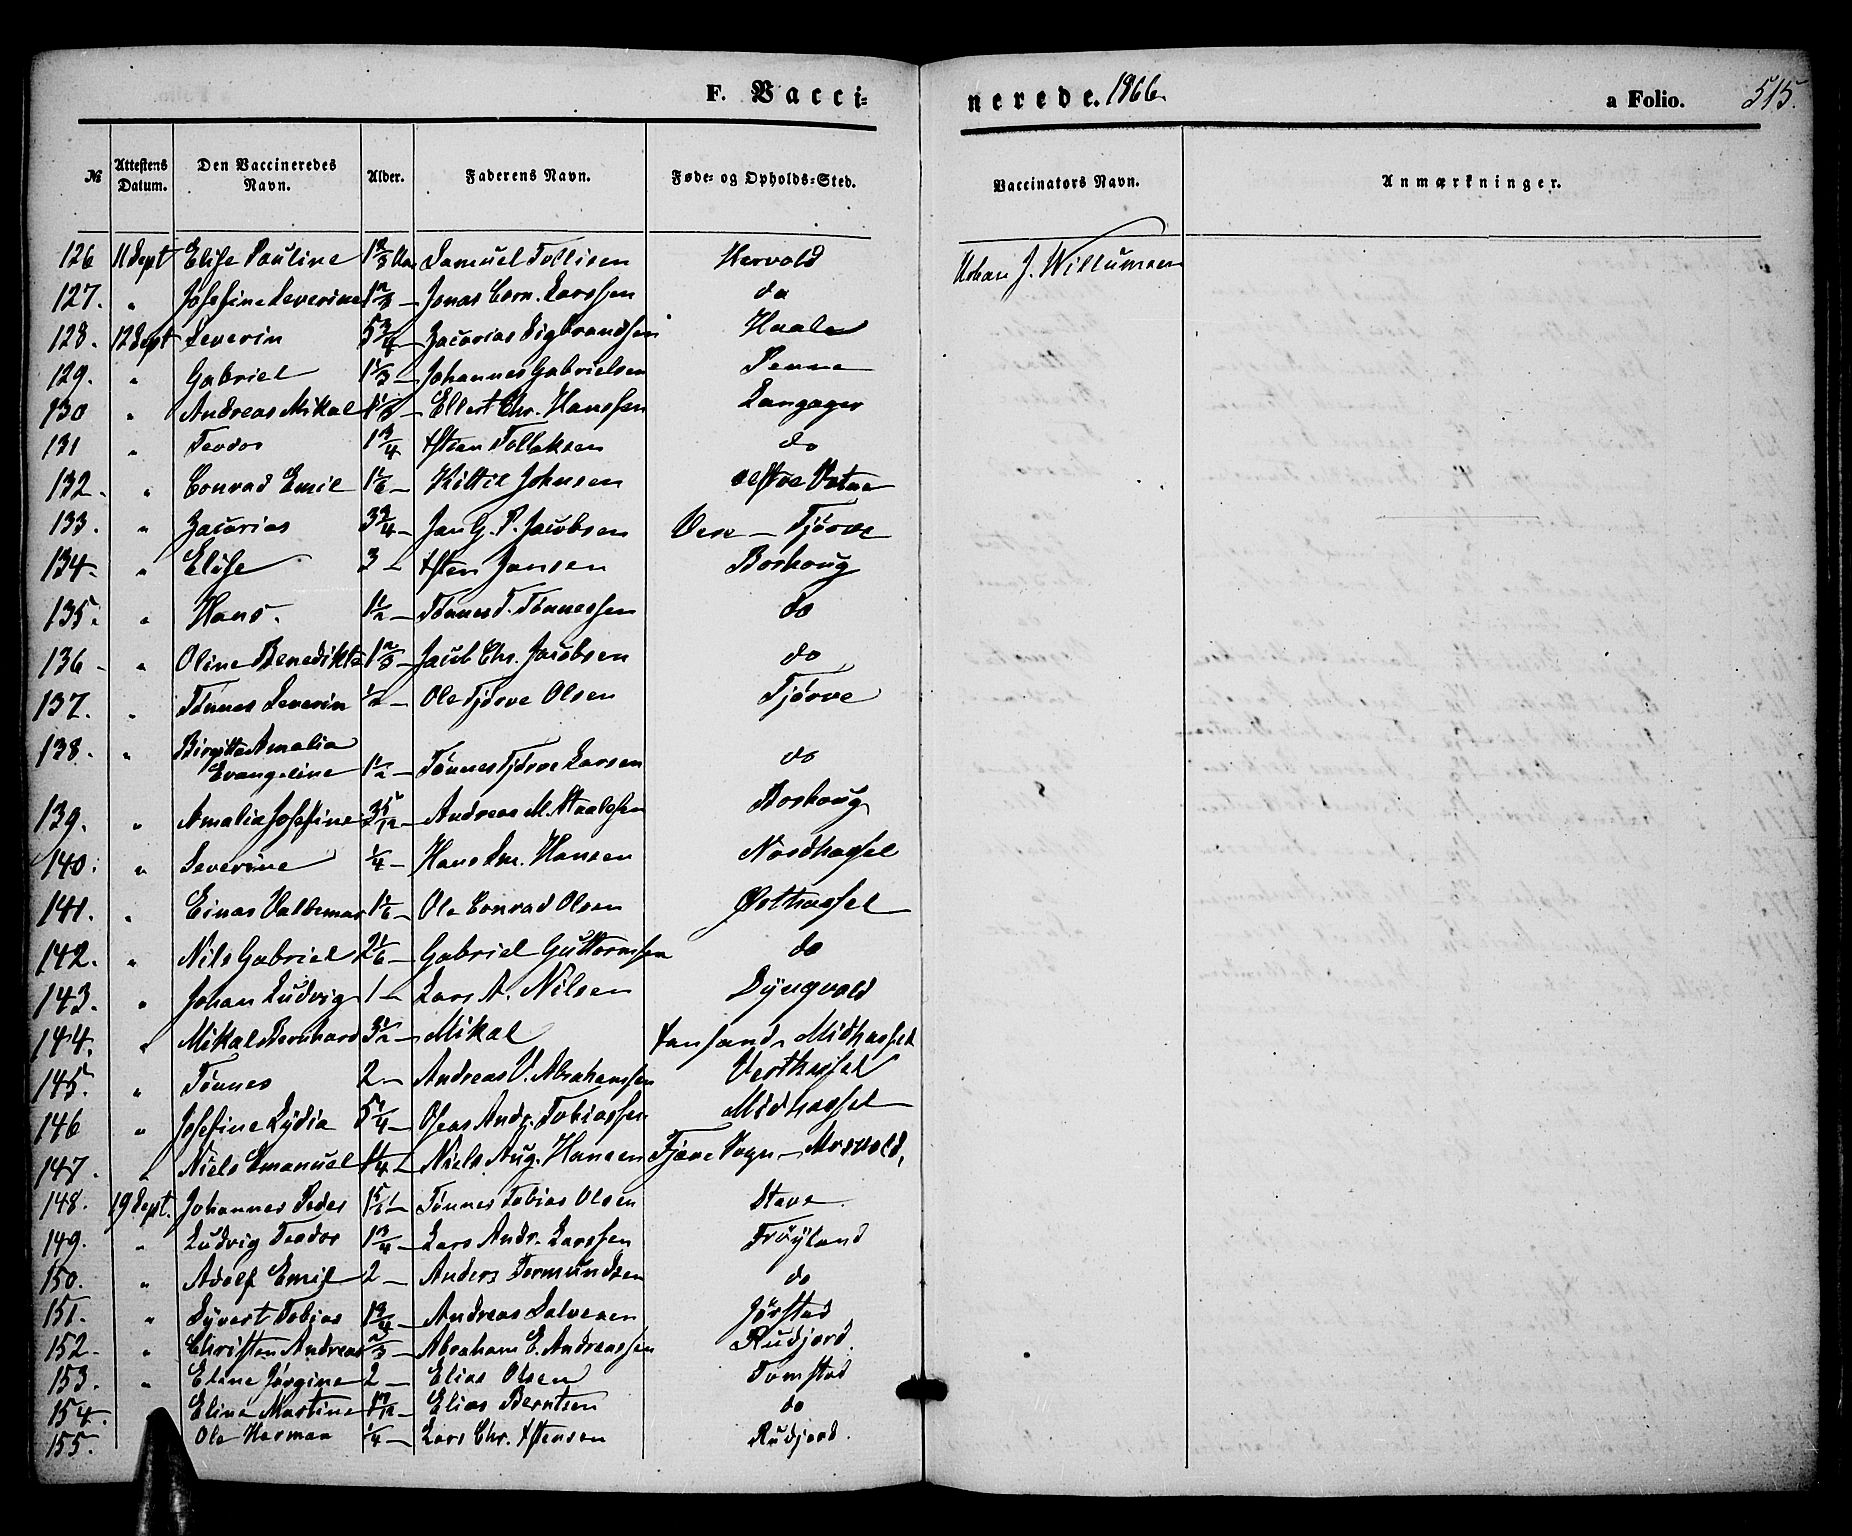 F. Vacci=
nerede. 1866.
a Folio. 515.
№ Attestens Datum. Den Vaccineredes Navn. Alder. Faderens Navn. Føde- og Opholds-Sted. Vaccinators Navn. Anmærkninger.
126 11 Sept Elise Pauline 1 2/3 Samuel Tollisen Hervold J. Willumsen
127. „ Josefine Severine 1 2/3 — Jonas Corn. Larssen do
128. 12 Sept Severin 5 3/4 — Zacarias Sigbrandsen
129. „ Gabriel 1 1/3 — Johannes Gabrielsen Penne
130 „ Andreas Mikal — Ellert Chr. Hanssen Langager
131 „ Teodor 1 3/4 Tollaksen do
132. „ Conrad Emil 1 1/6 — Kittil Johnsen Vatne
133. „ Zacarias 3 3/4 — Jan G. P. Jacobsen Vere — Tjørve
134. „ Elise 3 — Jansen Borhoug
135. „ Hans. 1 1/2 — Tønnes T. Tønnessen do
136 „ Oline Benedikte 1 2/3 — Jacob Chr. Jacobsen do
137. „ Tønnes Severin 1/2 — Ole Tjørve Olsen Tjørve
138. „ Birgitte Amalia
Evangeline 1 1/2 — Tønnes Tjørve Larsen do
139. „ Amalia Josefine 3 5/12 — Andreas M. Staalesen Borhoug
140. „ Severine 1/4 — Hans Hansen Nordhassel
141. „ Einar Valdemar 1 1/6 — Ole Conrad Olsen Østhassel
142. „ Nils Gabriel 2 1/6 — Gabriel Guttormsen do
143. „ Johan Ludvig 1 — Lars A. Nilsen Dyngvold
144. „ Mikal Bernhard 3 1/2 — Mikal Midhassel
145. „ Tønnes 2 — Andreas V. Abrahamsen Vesthassel
146 „ Josefine Lydia 5 1/4 — Oseas Andr. Tobiassen Midhassel
147. „ Niels Emanuel — Niels Aug. Hansen Sogn —
148. 19 Sept. Johannes Peder — Tønnes Tobias Olsen Stave
149. „ Ludvig Teodor 1 3/4 — Lars Andr. Larssen Frøyland
150. „ Adolf Emil 2 — Anders Tormundsen do
151. „ Syvert Tobias 1 3/4 — Andreas Salvesen Jørstad
152. „ Christen Andreas 2/3 — Abraham E. Andreassen Rudjord.
153. „ Eline Jørgine 2 — Elias Olsen Tomstad
154. Eline Martine — Elias Berntsen do
155. Ole Herman 1/4 — Lars Chr. Rudjord.